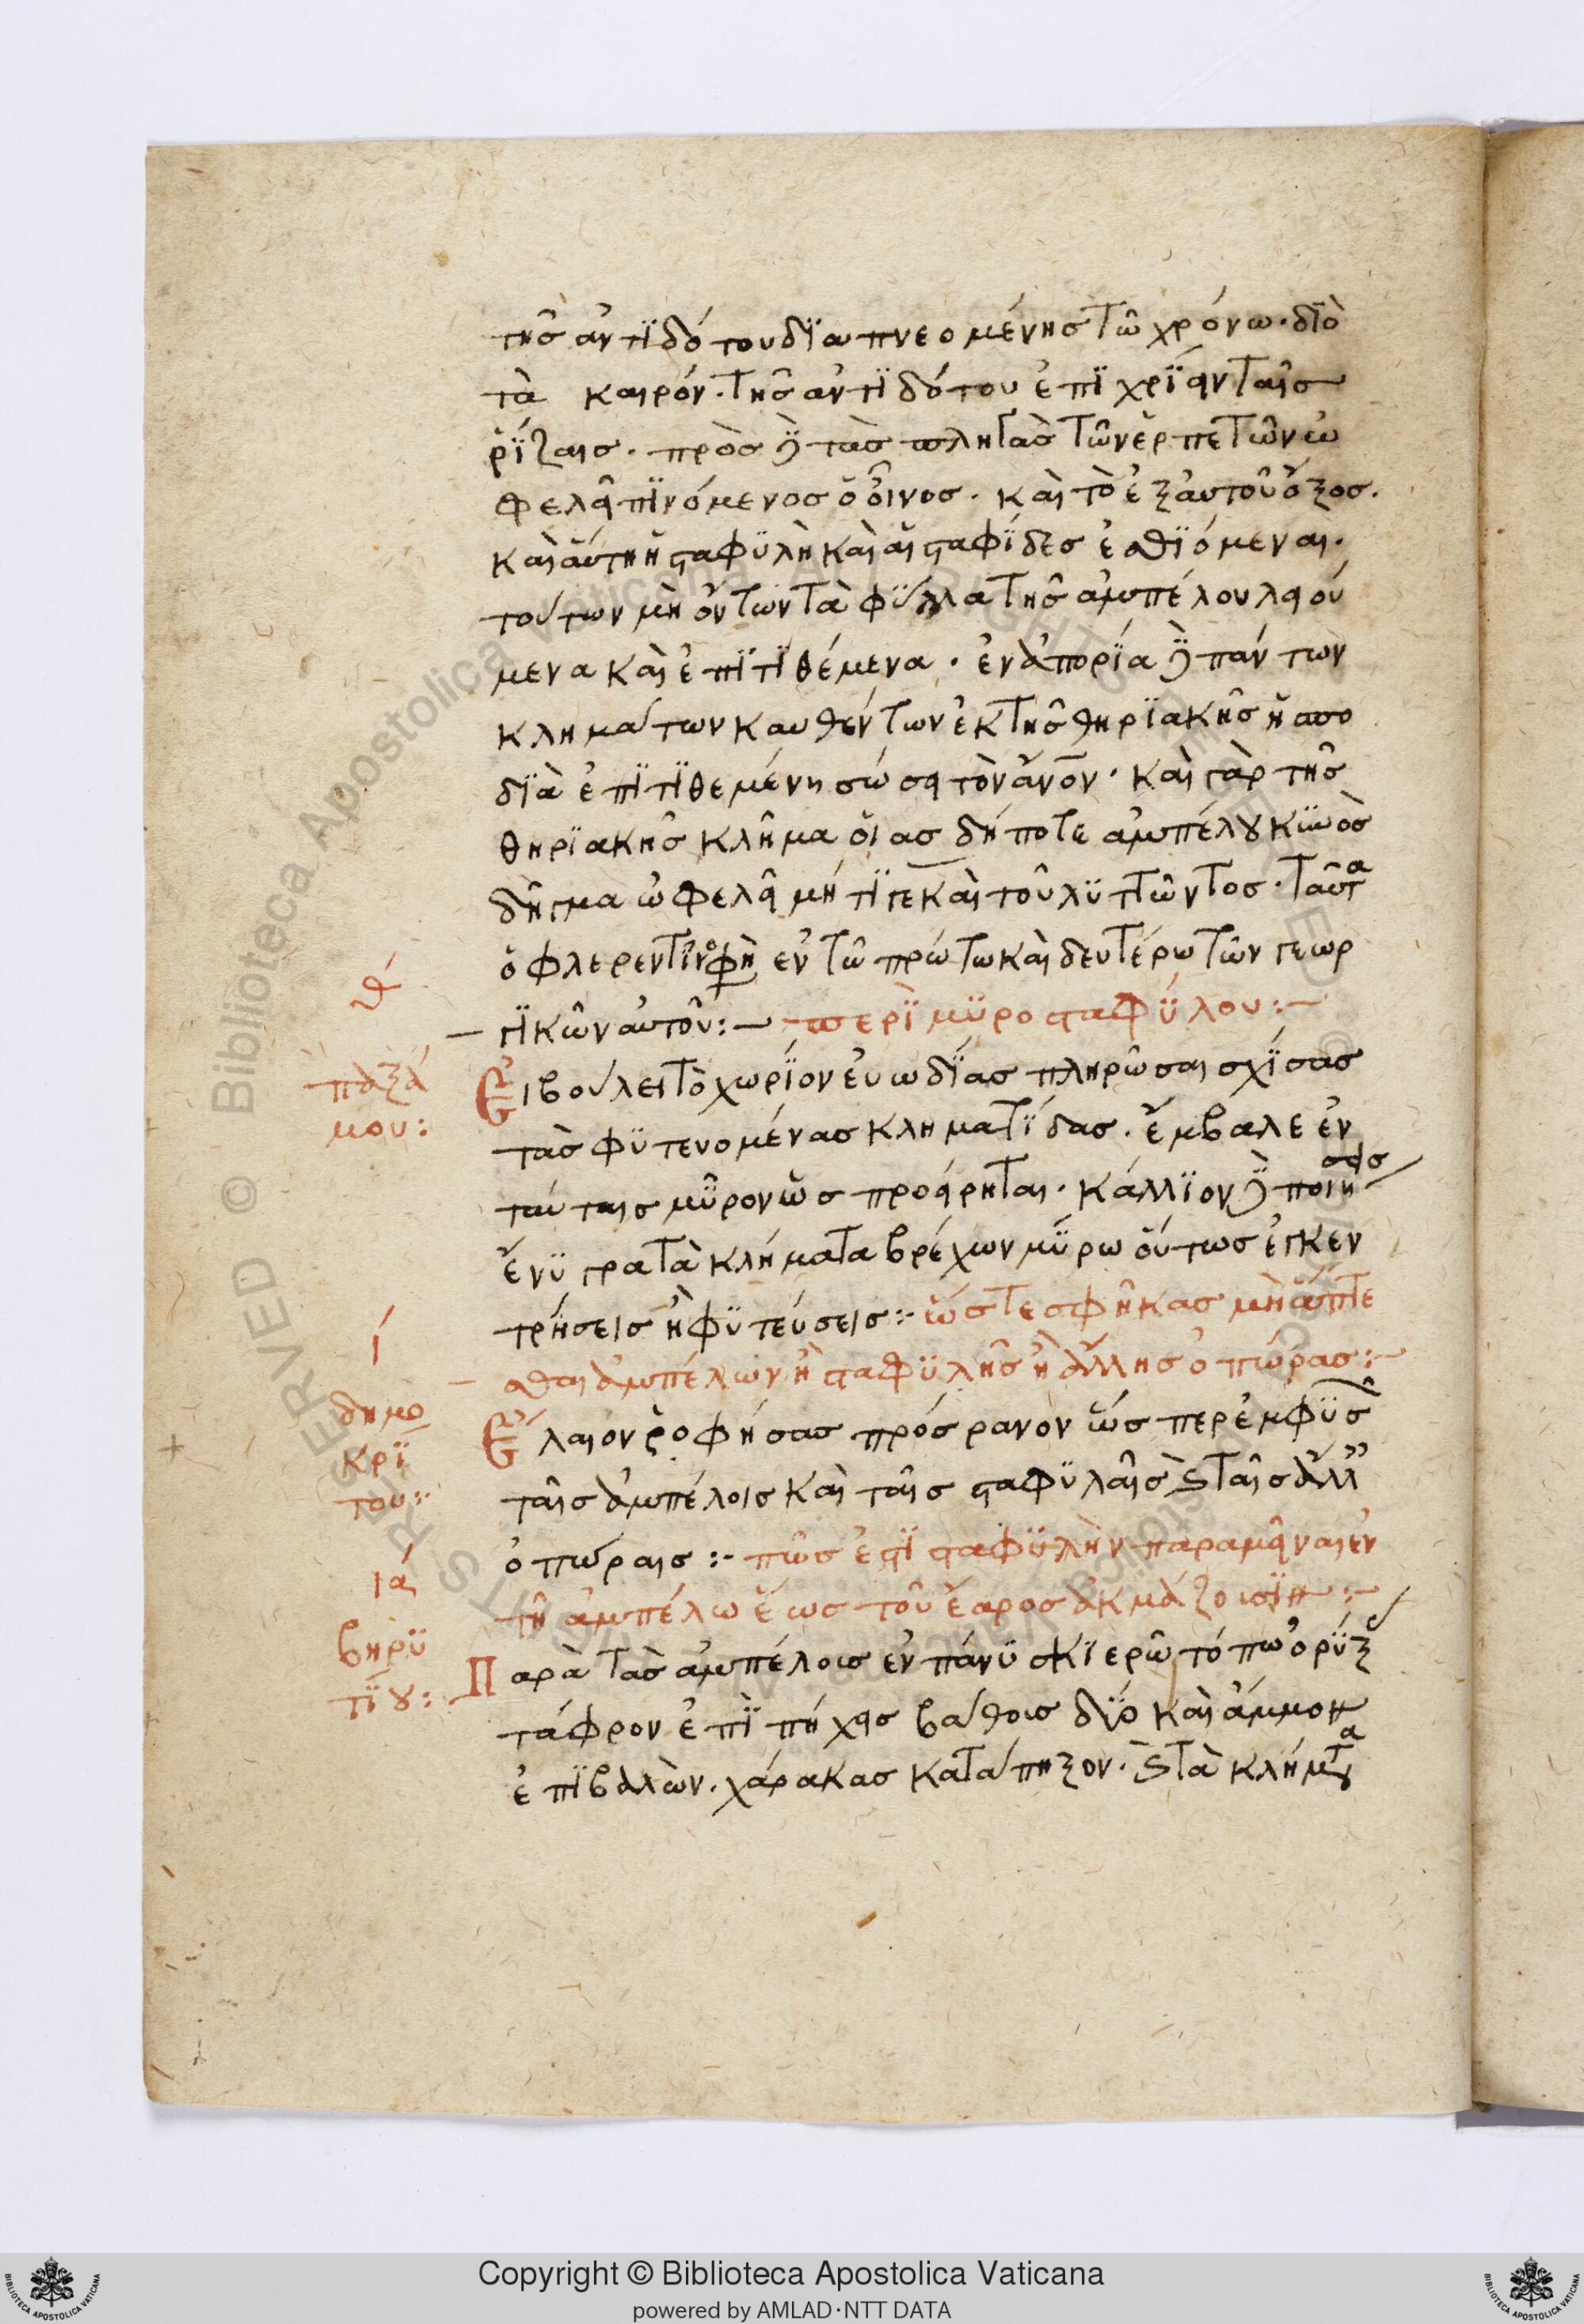 τῆς ἀντϊδότου δϊαπνεομένης τῶ χρόνω· διὸ
τὰ καιρόν· τῆς ἀντϊδότου ἐπϊχρίειν ταῖς
ῥΐζαις· πρὸς δὲ τὰς πληγὰς τῶν ἑρπετῶν ὠ
φελεῖ πϊνόμενος ὁ οἶνος· καὶ τὸ ἐξ αὐτοῦ ὄξος·
καὶ αὐτὴ ἡ σταφϋλὴ καὶ αἱ σταφΐδες ἐσθϊόμεναι·
τούτων μὴ ὄντων τὰ φΰλλα τῆς ἀμπέλου λειού
μενα καὶ ἐπϊτϊθέμενα· ἐν ἀπορΐα δὲ πάντων
κλημάτων καυθέντων ἐκ τῆς θηρϊακῆς ἡ σπο
δϊὰ ἐπϊτϊθεμένη σώσει τὸν ἄνον· καὶ γὰρ τῆς
θηρϊακῆς κλῆμα οἵας δήποτε ἀμπέλου κϋνὸς
δῆγμα ὠφελεῖ μήτϊγε καὶ τοῦ λϋττῶντος· ταῦτα
ὁ φλερεντῖνός φησὶν ἐν τῶ πρώτω καὶ δευτέρω τῶν γεωρ
γϊκῶν αὐτοῦ:— περὶ μϋροσταφΰλου:—
θ́
παξά
μου:
Εἰ βούλει τὸ χωρΐον εὐωδΐας πληρῶσαι σχΐσας
τὰς φϋτευομένας κληματΐδας· ἔμβαλε ἐν
ταύταις μΰρον ὡς προείρηται· κάλλϊον δὲ ποιήσεις
ἔνϋγρα τὰ κλήματα βρέχων μΰρω οὕτως ἐγκεν
τρήσεις ἢ φϋτεύσεις:- ὥστε σφῆκας μὴ ἅπτε
ί
σθαι ἀμπέλων ἢ σταφϋλῆς ἢ ἄλλης ὀπώρας:—
δημο
κρΐ
του:-
Ἔλαιον ῥοφήσας πρόσρανον ὥσπερ ἐμφϋσῶν
ταῖς ἀμπέλοις καὶ ταῖς σταφϋλαῖς καὶ ταῖς ἄλλ
ὀπώραις:- πῶς ἐστὶ σταφϋλὴν παραμεῖναι ἐν
ιά
τῆ ἀμπέλω ἕως τοῦ ἔαρος ἀκμάζουσϊν:—
βηρϋ
τΐου:
Παρὰ τὰς ἀμπέλους ἐν πάνϋ σκϊερῶ τόπω ὀρΰξ
τάφρον ἐπϊ πήχεις βάθους δΰο καὶ ἄμμον
ἐπϊβαλὼν· χάρακας κατάπηξον· καὶ τὰ κλήματα
Copyright © Biblioteca Apostolica Vaticana
powered by AMLAD·NTT DATA